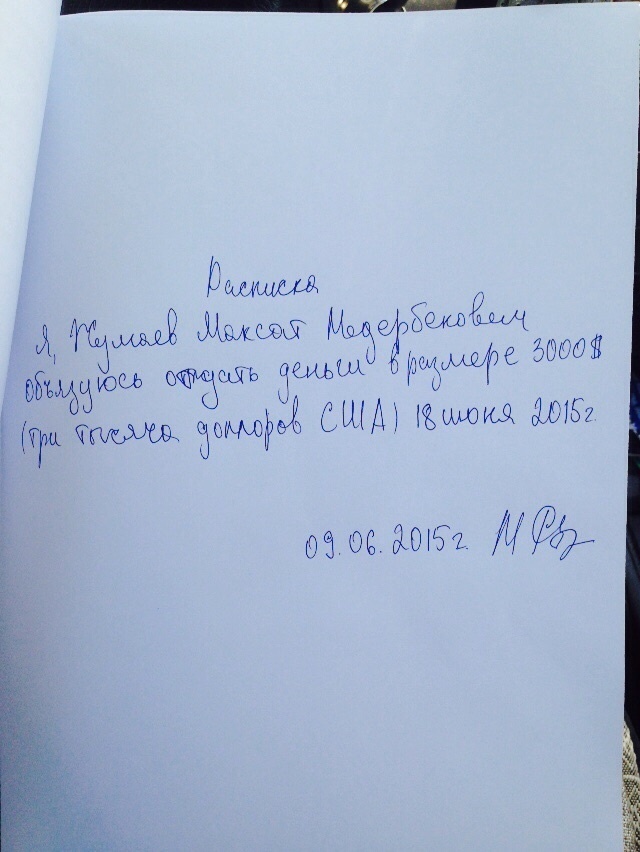 Расписка
Я, Жумаев Максат Мадербековем
обязуюсь отдать деньги в размере 3000$
(три тысяча долларов США) 18 июня 2015г.
09.06.2015г.